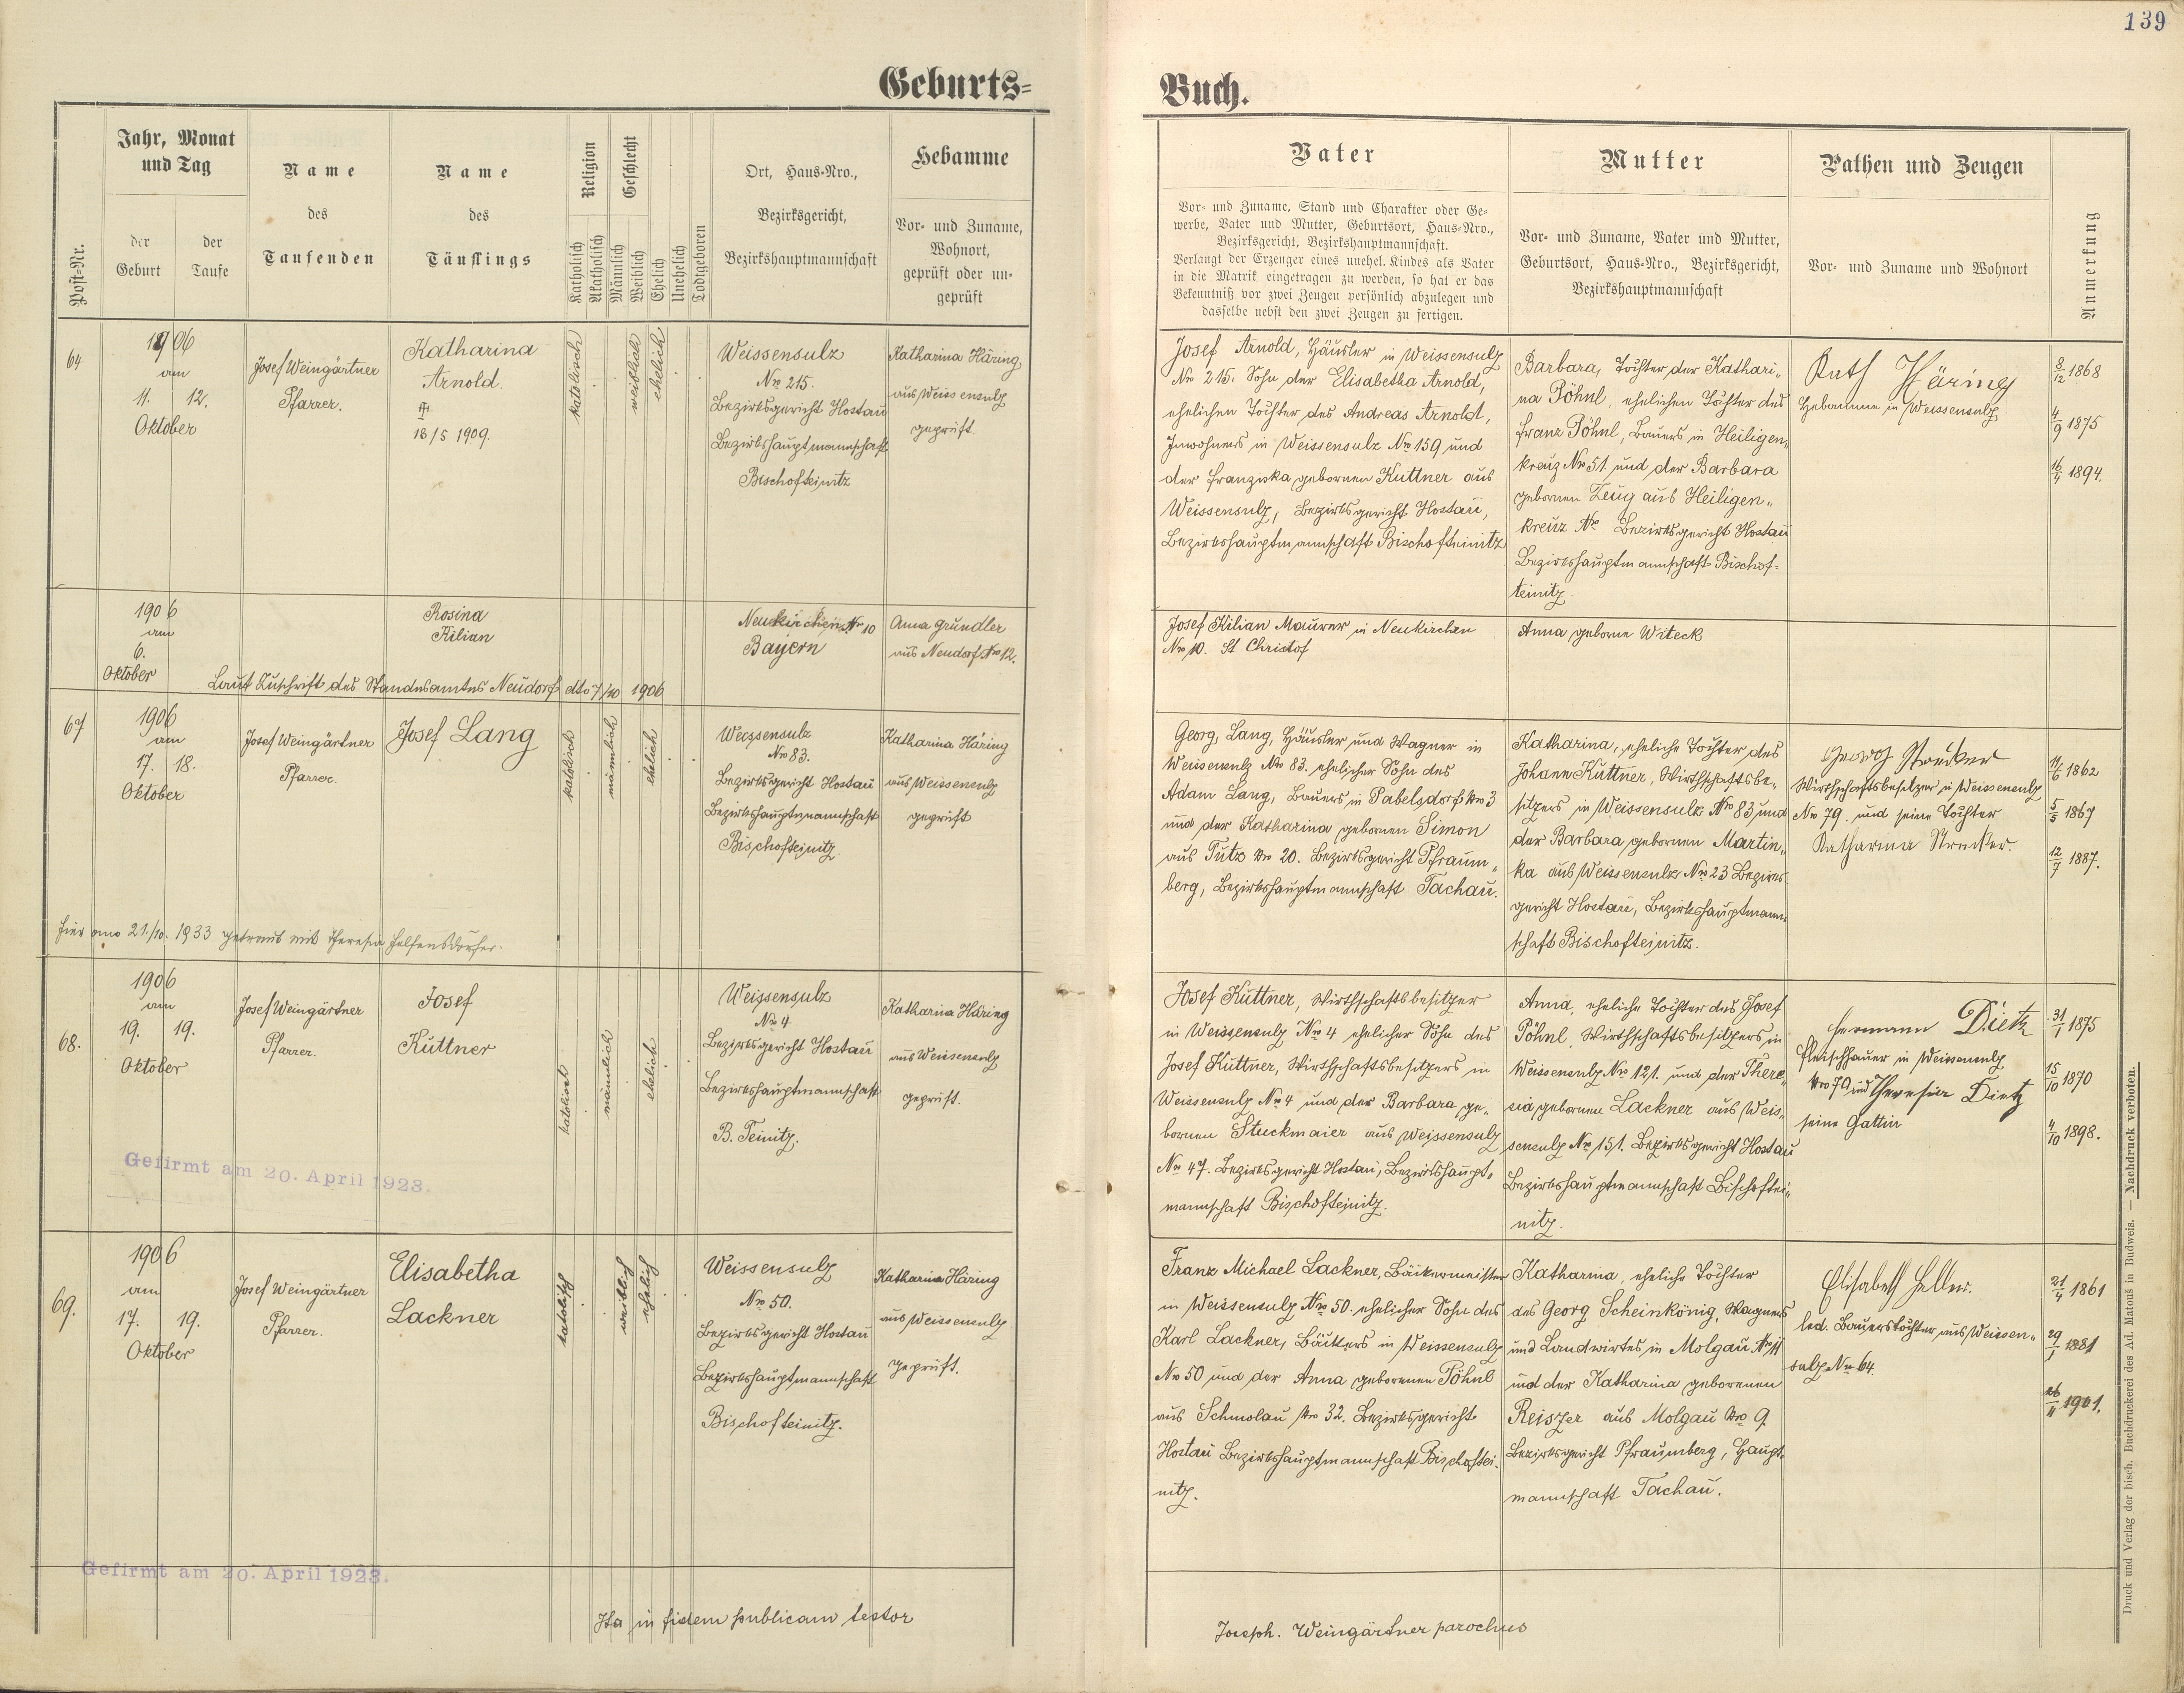 139
Geburts=
Buch.
Post-Nr.
Jahr, Monat
und Tag
der
Geburt
der
Taufe
Name
des
Taufenden
Name
des
Täuflings
Religion
Katholisch
Akatholisch
Geschlecht
Männlich
Weiblich
Ehelich
Unehelich
Todtgeboren
Ort, Haus-Nro.,
Bezirksgericht,
Bezirkshauptmannschaft
Hebamme
Vor- und Zuname,
Wohnort,
geprüft oder un-
geprüft
Vater
Vor- und Zuname, Stand und Charakter oder Ge-
werbe, Vater und Mutter, Geburtsort, Haus-Nro.,
Bezirksgericht, Bezirkshauptmannschaft.
Verlangt der Erzeuger eines unehel. Kindes als Vater
in die Matrik eingetragen zu werden, so hat er das
Bekenntniß vor zwei Zeugen persönlich abzulegen und
dasselbe nebst den zwei Zeugen zu fertigen.
Mutter
Vor- und Zuname, Vater und Mutter,
Geburtsort, Haus-Nro., Bezirksgericht,
Bezirkshauptmannschaft
Pathen und Zeugen
Vor- und Zuname und Wohnort
Anmerkung
64
1906
am
11. 12.
Oktober
Josef Weingärtner
Pfarrer.
Katharina
Arnold.
18/5 1909.
katolisch
weiblich
ehelich
Weissensulz
Nro 215.
Bezirksgericht Hostau
Bezirkshauptmannschaft
Bischofteinitz
Katharina Häring
aus Weissensulz
geprüft.
Josef Arnold, Häusler in Weissensulz
Nro 215. Sohn der Elisabetha Arnold,
ehelichen Tochter des Andreas Arnold,
Inwohners in Weissensulz Nro 159 und
der Franziska gebornen Kuttner aus
Weissensulz, Bezirksgericht Hostau,
Bezirkshauptmannschaft Bischofteinitz
Barbara, Tochter der Kathari„
na Pöhnl, ehelichen Tochter des
Franz Pöhnl, Bauers in Heiligen„
kreuz Nro 51 und der Barbara
gebornen Zeug aus Heiligen„
kreuz Nro Bezirksgericht Hostau
Bezirkshauptmannschaft Bischof-
teinitz
Kath Häring
Hebamme in Weissensulz
8/12 1868
4/9 1875
16/4 1894.
1906
am
6.
Oktober
Rosina
Kilian
Neukirchen Nr 10
Bayern
Anna Gründler
aus Neudorf Nro 12.
Laut Zuschrift des Standesamtes Neudorf dto 7/10 1906
Josef Kilian Maurer in Neukirchen
Nro 10. St Christof
Anna geborne Witeck
67
1906
am
17. 18.
Oktober
Josef Weingärtner
Pfarrer.
Josef Lang
katolisch
männlich
ehelich
Weissensulz
Nro 83.
Bezirksgericht Hostau
Bezirkshauptmannschaft
Bischofteinitz.
Katharina Häring
aus Weissensulz
geprüft
Hier am 21/10. 1933 getraut mit Theresia Helfensdorfer.
Georg Lang, Häusler und Wagner in
Weissensulz Nro 83. ehelicher Sohn des
Adam Lang, Bauers in Pabelsdorf Nro 3
und der Katharina gebornen Simon
aus Tutz Nro 20. Bezirksgericht Pfraum„
berg, Bezirkshauptmannschaft Tachau.
Katharina, eheliche Tochter des
Johann Kuttner, Wirthschaftsbe-
sitzers in Weissensulz Nro 83 und
der Barbara gebornen Martin„
ka aus Weissensulz Nro 23 Bezirks-
gericht Hostau, Bezirkshauptmann„
schaft Bischofteinitz.
Georg Strecker
Wirthschaftsbesitzer in Weissensulz
Nro 79. und seine Tochter
Katharina Strecker.
11/6 1862
5/5 1867
12/7 1887.
68.
1906
am
19. 19.
Oktober
Josef Weingärtner
Pfarrer.
Josef
Kuttner
katolisch
männlich
ehelich
Weissensulz
Nro 4
Bezirksgericht Hostau
Bezirkshauptmannschaft
B. Teinitz.
Katharina Häring
aus Weissensulz
geprüft.
Gefirmt am 20. April 1923.
Josef Kuttner, Wirthschaftsbesitzer
in Weissensulz Nro 4 ehelicher Sohn des
Josef Kuttner, Wirthschaftsbesitzers in
Weissensulz Nro 4 und der Barbara ge„
bornen Stuckmaier aus Weissensulz
Nro 47. Bezirksgericht Hostau, Bezirkshaupt„
mannschaft Bischofteinitz.
Anna, eheliche Tochter des Josef
Pöhnl, Wirthschaftsbesitzers in
Weissensulz Nro 121. und der There„
sia gebornen Lackner aus Weis„
sensulz Nro 151. Bezirksgericht Hostau
Bezirkshauptmannschaft Bischoftei„
nitz.
Hermann Dietz
Fleischhauer in Weissensulz
Nro 70 und Theresia Dietz
seine Gattin
31/1 1875
15/10 1870
4/10 1898.
69.
1906
am
17. 19.
Oktober
Josef Weingärtner
Pfarrer.
Elisabetha
Lackner
katolisch
weiblich
ehelich
Weissensulz
Nro 50.
Bezirksgericht Hostau
Bezirkshauptmannschaft
Bischofteinitz.
Katharina Häring
aus Weissensulz
geprüft.
Gefirmt am 20. April 1923.
Franz Michael Lackner, Bäckermeister
in Weissensulz Nro 50. ehelicher Sohn des
Karl Lackner, Bäckers in Weissensulz
Nro 50 und der Anna geborenen Pöhnl
aus Schmolau Nro 32. Bezirksgericht
Hostau Bezirkshauptmannschaft Bischoftei-
nitz.
Katharina, eheliche Tochter
des Georg Scheinkönig, Wagners
und Landwirtes in Molgau Nro 11
und der Katharina geborenen
Reiszer aus Molgau Nro 9.
Bezirksgericht Pfraumberg, Haupt„
mannschaft Tachau.
Elisabeth Heller.
led. Bauerstochter aus Weissen„
sulz Nro 64.
21/4 1861
29/1 1881
26/11 1901.
Ita in fidem publicam testor
Joseph. Weingärtner parochus
Druck und Verlag der bisch. Buchdruckerei des Ad. Matouš in Budweis. — Nachdruck verboten.